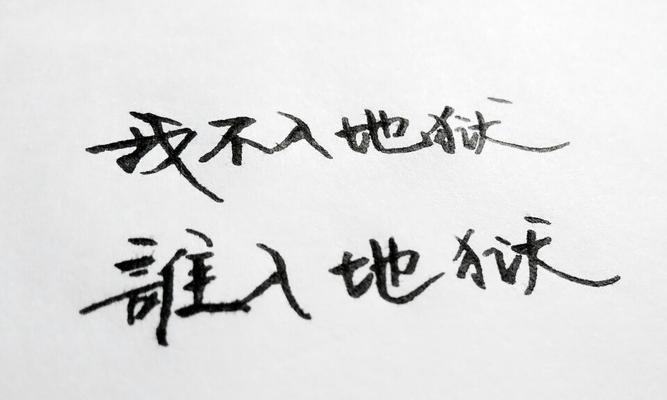 我不入地獄
誰入地獄